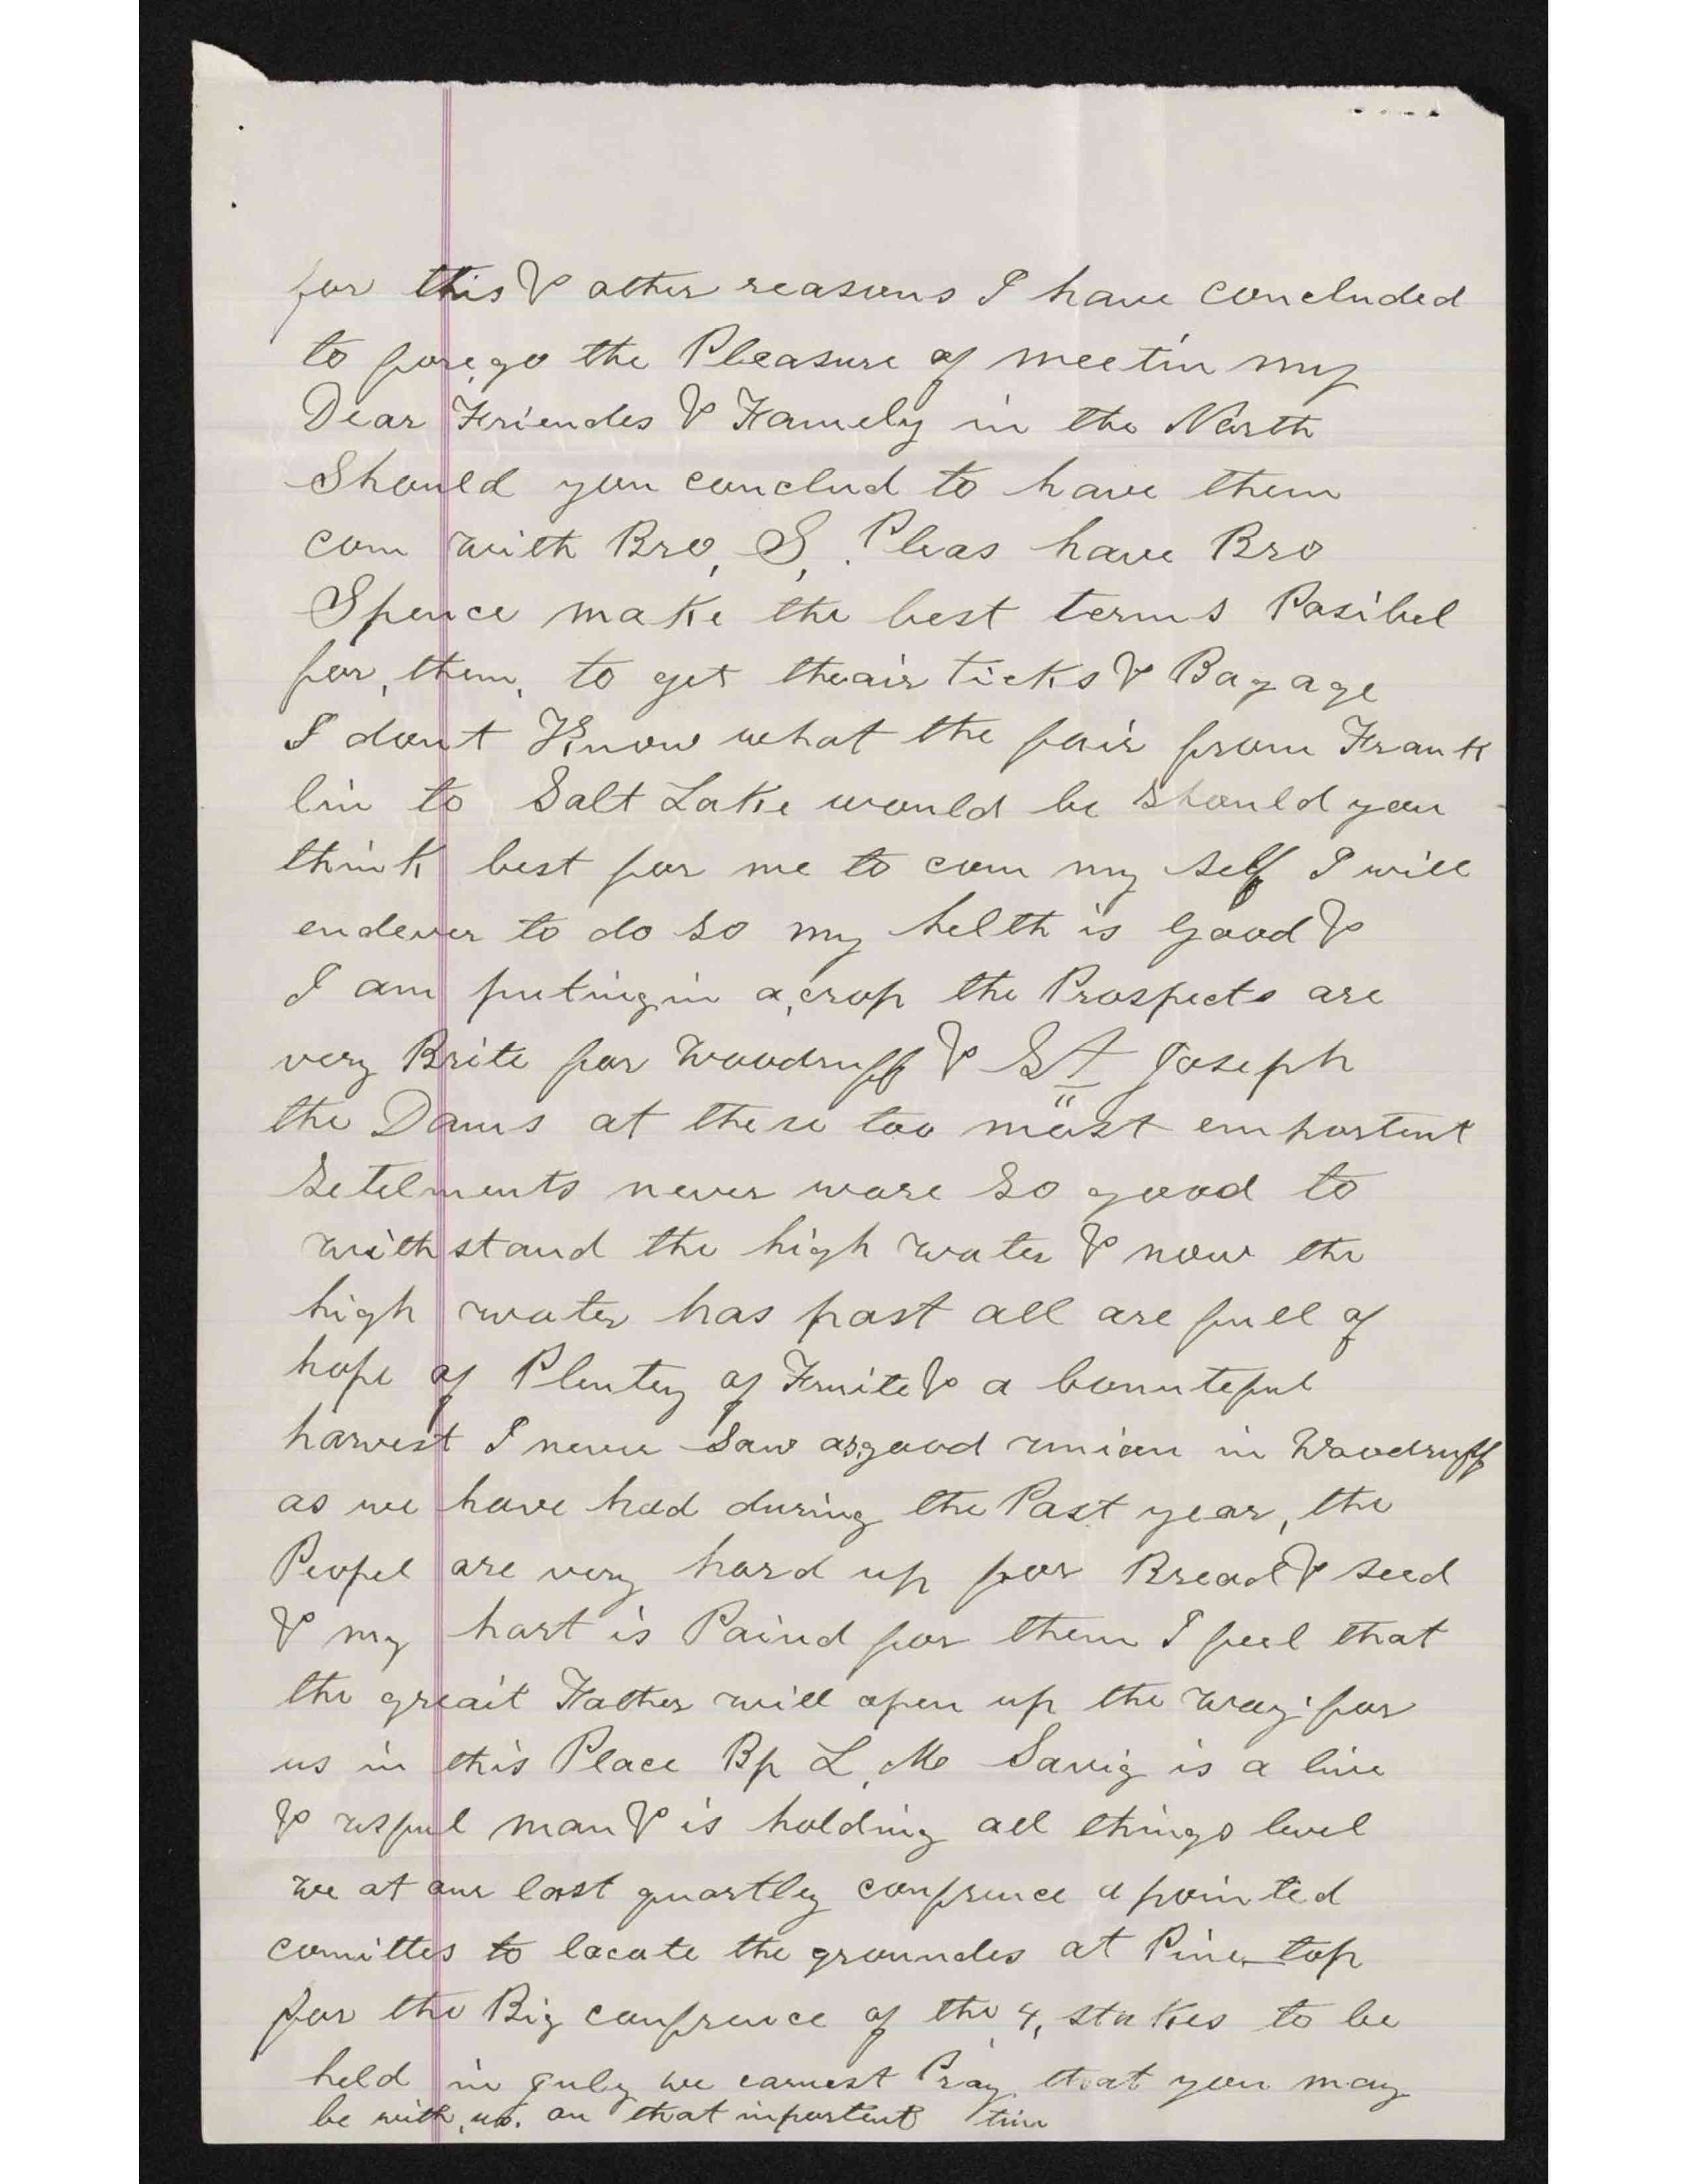 for this & other reasons I have concluded
to fore,go the Pleasure of meetin my
Dear Friendes & Famely in the North
Should you conclud to have them
com with Bro, S, . Pleas have Bro
Spence make the best terms Posibel
for, them, to get theair ticks & Bagage
I dont Know what the fair from Frank
lin to Salt Lake would be should you
think best for me to com my self I will
endever to do so my helth is good &
I am puting in a,crop the Prospects are
very Brite for Woodruff & St Joseph
the Dams at these too most emportent
Setelments never ware so good to
with stand the high water & now the
high water has past all are full of
hope of Plentey of Fruite & a bounteful
harvest I never Saw as,good union in Woodruff
as we have had during the Past year, the
Peopel are very hard up for Bread & seed
& my hart is Paind for them I feel that
the greait Father will open up the way for
us in this Place Bp L, M Savig is a live
& usful man & is holding all things level
we at our last quartley confrence apointed
comittes to locate the groundes at Pine top
for the Big confrence of the 4, stakes to be
held in July we earnest Pray, that you may
be with, us. on that importent time